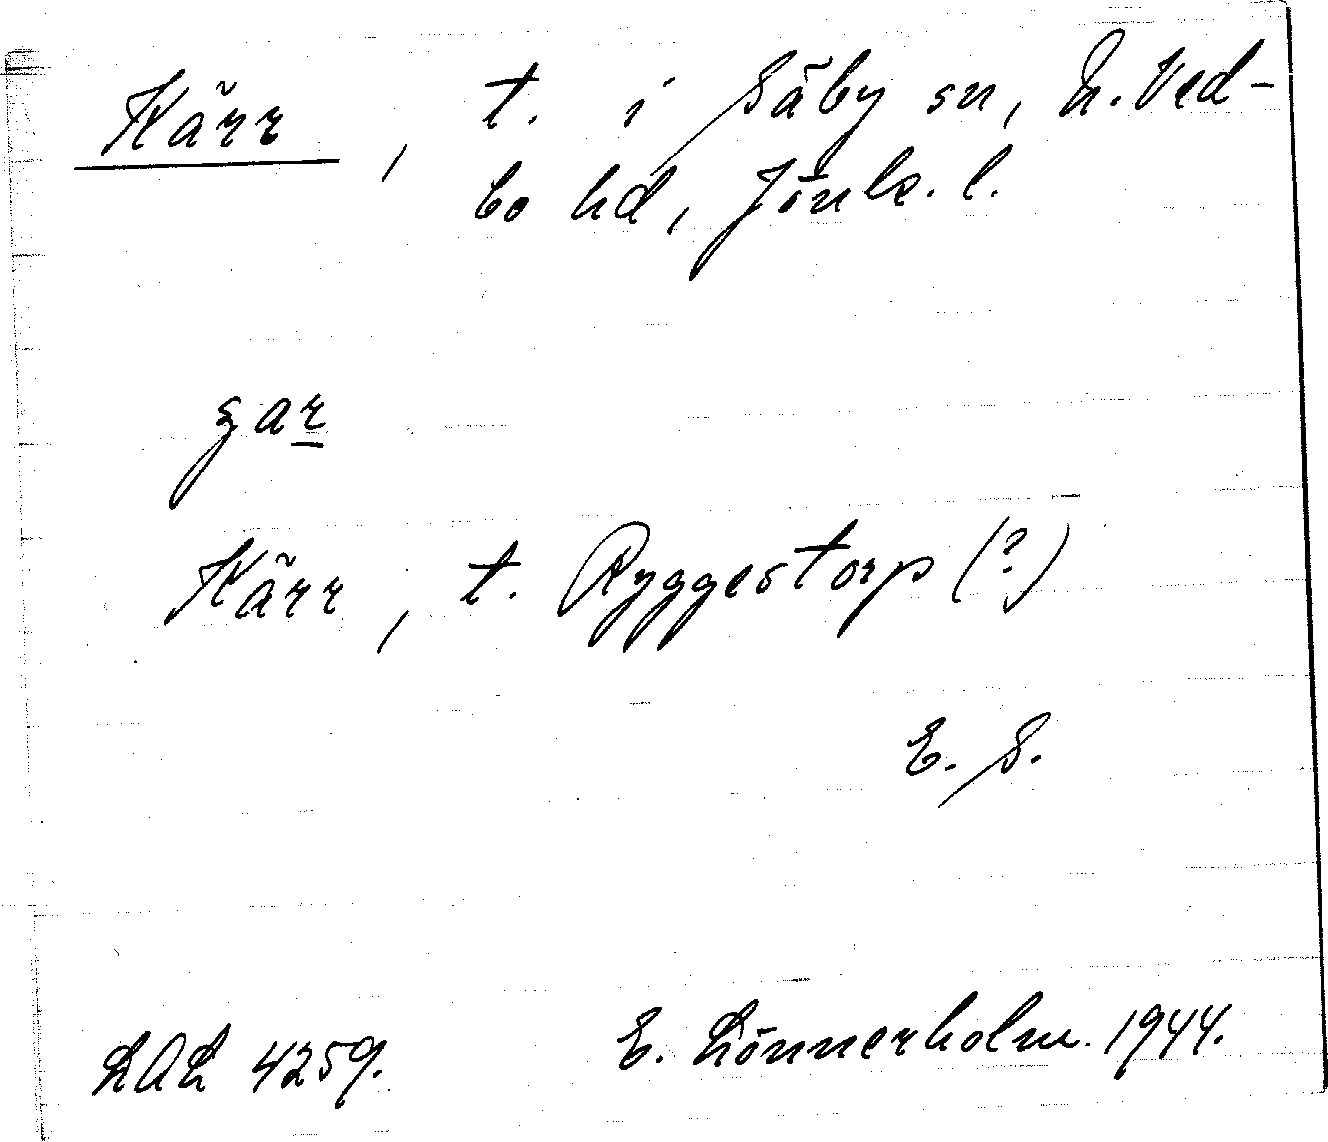 Kärr, t. i Säby sn, N. Ved-
bo hd, Jönk. l.
gar
Kärr, t. Ryggestorp (?)
E. S.
LAL 4259. E. Lönnerholm. 1944.